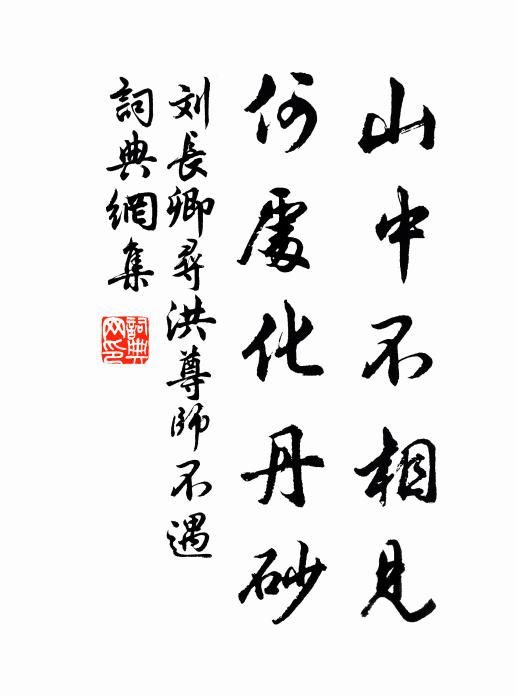 山中不相見
何處化丹砂
刘長卿尋洪尊師不遇
詞典網集
詞典网印